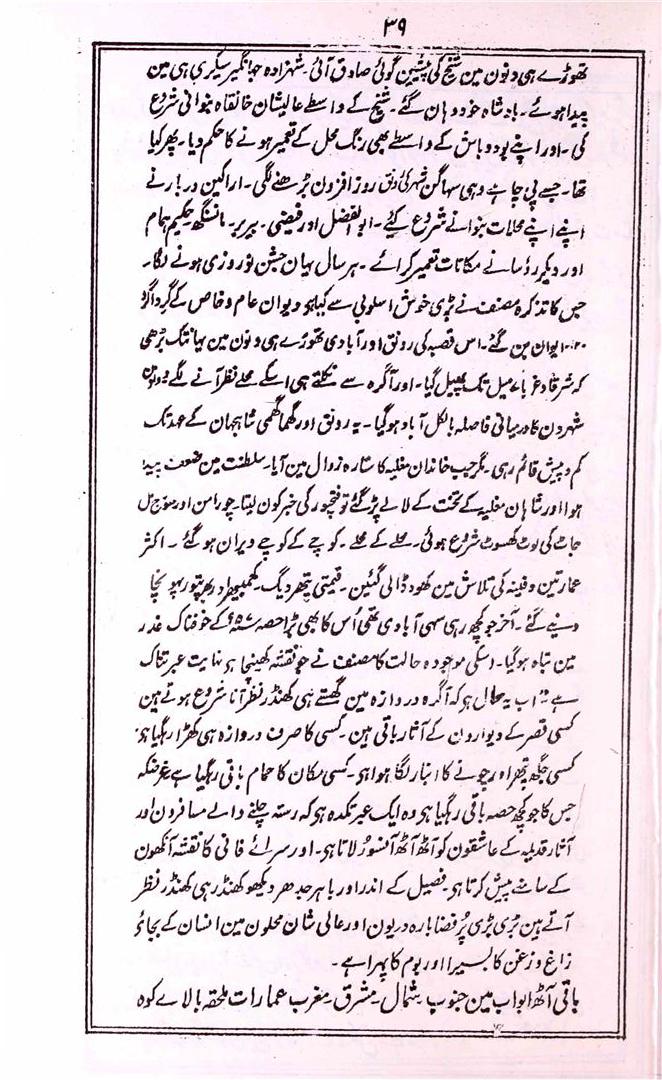 ۳۹
تھوڑے ہی دنون مین شیخ کی پیشین گوئی صادق آئی۔ شہزادہ جہانگیر سیکری ہی مین
پیدا ہوئے۔ بادشاہ خود وہان گئے۔ شیخ کے واسطے عالیشان خانقاہ بنوانی شروع
کی۔ اور اپنے بود و باش کے واسطے بھی رنگ محل کے تعمیر ہونے کا حکم دیا۔ پھر کیا
تھا۔ جسے پی چاہے وہی سہاگن شہر کی رونق روز افزون بڑھنے لگی۔ اراکین دربار نے
اپنے اپنے محلات بنوانے شروع کیے۔ ابوالفضل اور فیضی۔ بیربر۔ مانسنگھ حکیم ہمام
اور دیگر رؤسا نے مکانات تعمیر کرائے۔ ہر سال یہان جشن نوروزی ہونے لگا۔
جس کا تذکرہ مصنف نے بڑی خوش اسلوبی سے کیا ہو دیوان عام و خاص کے گرداگرد
۱۲۰ ایوان بن گئے۔ اس قصبہ کی رونق اور آبادی تھوڑے ہی دنون مین یہانتک بڑھی
کہ شرقاً و غرباً ۷ میل تک پھیل گیا۔ اور آگرہ سے نکلتے ہی اسکے محلے نظر آنے لگے دونون
شہرون کا درمیانی فاصلہ بالکل آباد ہو گیا۔ یہ رونق اور گہما گہمی شاہجہان کے عہد تک
کم و بیش قائم رہی۔ مگر جب خاندان مغلیہ کا ستارہ زوال مین آیا۔ سلطنت مین ضعف پیدا
ہوا اور شاہان مغلیہ کے تخت کے لالے پڑ گئے تو فتحپور کی خبر کون لیتا۔ چورامن اور سورج مل
جاٹ کی لوٹ کھسوٹ شروع ہوئی۔ محلے کے محلے۔ کوچے کے کوچے ویران ہو گئے ۔ اکثر
عمارتین دفینہ کی تلاش مین کھود ڈالی گئین۔ قیمتی پتھر دیگ۔ کمہیر اور بھرتپور پہونچا
دیے گئے۔ آخر جو کچھ رہی سہی آبادی تھی اُس کا بھی بڑا حصہ ۱۸۵۷ء کے خوفناک غدر
مین تباہ ہو گیا۔ اسکی موجودہ حالت کا مصنف نے جو نقشہ کھینچا ہو نہایت عبرتناک
ہے "اب یہ حال ہو کہ آگرہ دروازہ مین گھستے ہی کھنڈر نظر آنا شروع ہوتے ہین
کسی قصر کے دیوارون کے آثار باقی ہین۔ کسی کا صرف دروازہ ہی کھڑا رہگیا ہو
کسی جگہ پتھر اور چونے کا انبار لگا ہوا ہو۔ کسی مکان کا حمام باقی رہگیا ہے غرضکہ
جس کا جو کچھ حصہ باقی رہگیا ہو وہ ایک عبرتکدہ ہو کہ رستہ چلنے والے مسافرون اور
آثار قدیمہ کے عاشقون کو آٹھ آٹھ آنسو رُلاتا ہو۔ اور سرائے فانی کا نقشہ آنکھون
کے سامنے پیش کرتا ہو۔ فصیل کے اندر اور باہر جدھر دیکھو کھنڈر ہی کھنڈر نظر
آتے ہین بڑی بڑی پُر فضا بارہ دریون اور عالی شان محلون مین انسان کے بجائے
زاغ و زغن کا بسیرا اور بوم کا پہرا ہے۔
باقی آٹھ ابواب مین جنوب۔ شمال۔ مشرق۔ مغرب عمارات ملحقہ بالائے کوہ